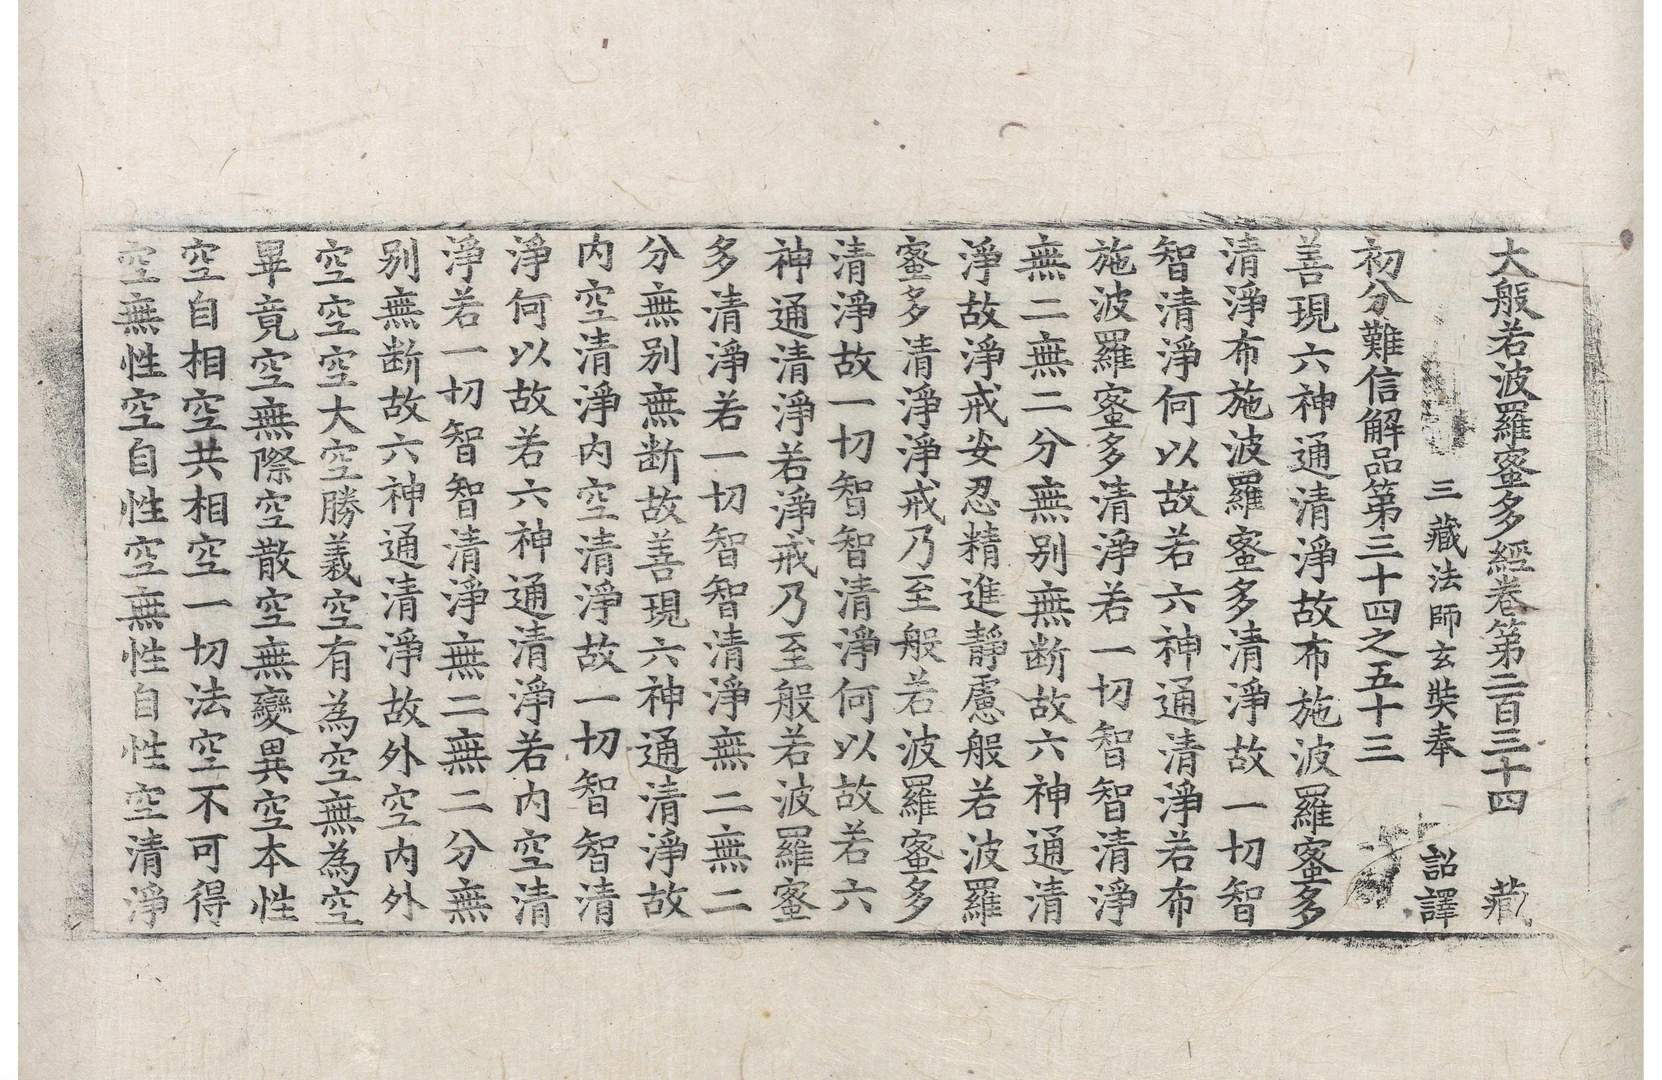 大般若波羅蜜多經卷第二百三十四　藏
三藏法師玄奘奉　詔譯
初分難信解品第三十四之五十三
善現六神通清淨故布施波羅蜜多
清淨布施波羅蜜多清淨故一切智
智清淨何以故若六神通清淨若布
施波羅蜜多清淨若一切智智清淨
無二無二分無別無断故六神通清
淨故淨戒安忍精進靜慮般若波羅
蜜多清淨淨戒乃至般若波羅蜜多
清淨故一切智智清淨何以故若六
神通清淨若淨戒乃至般若波羅蜜
多清淨若一切智智清淨無二無二
分無别無断故善現六神通清淨故
内空清淨内空清淨故一切智智清
淨何以故若六神通清淨若内空清
淨若一切智智清淨無二無二分無
别無断故六神通清淨故外空内外
空空空大空勝義空有為空無為空
畢竟空無際空散空無變異空本性
空自相空共相空一切法空不可得
空無性空自性空無性自性空清淨